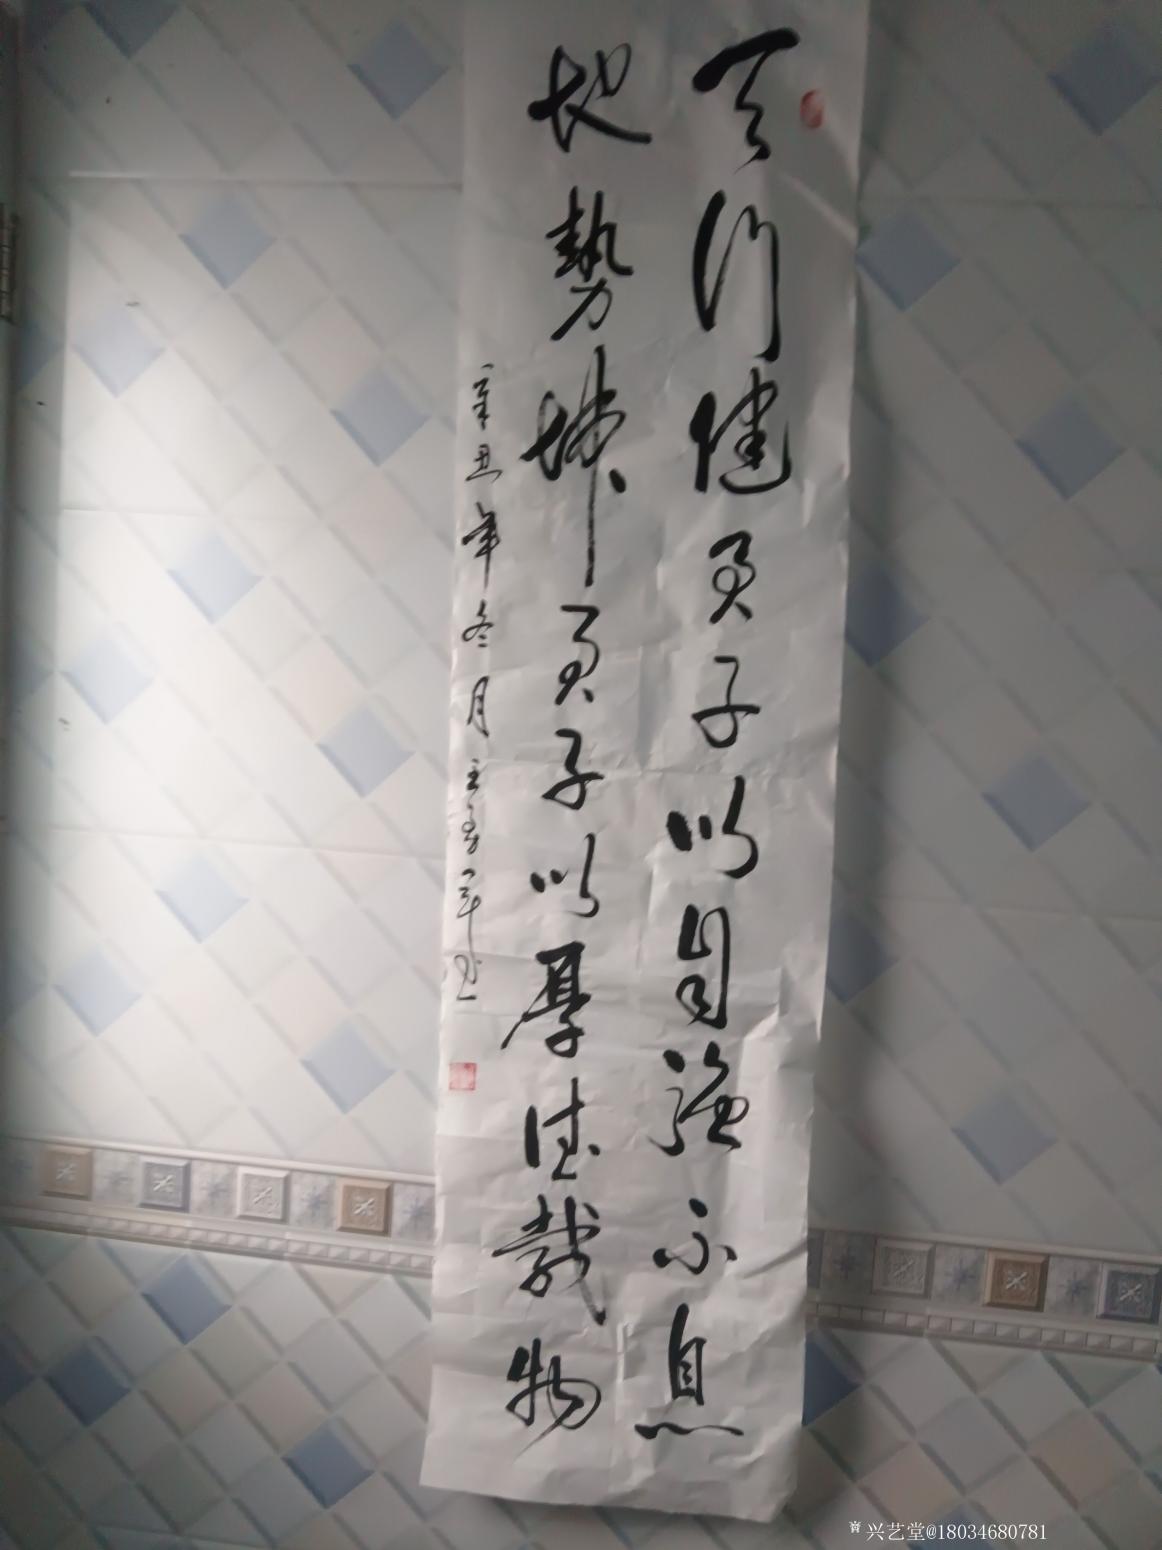 天行健君子以自强不息
地势坤君子以厚德载物
辛丑年冬月
兴艺堂@18034680781